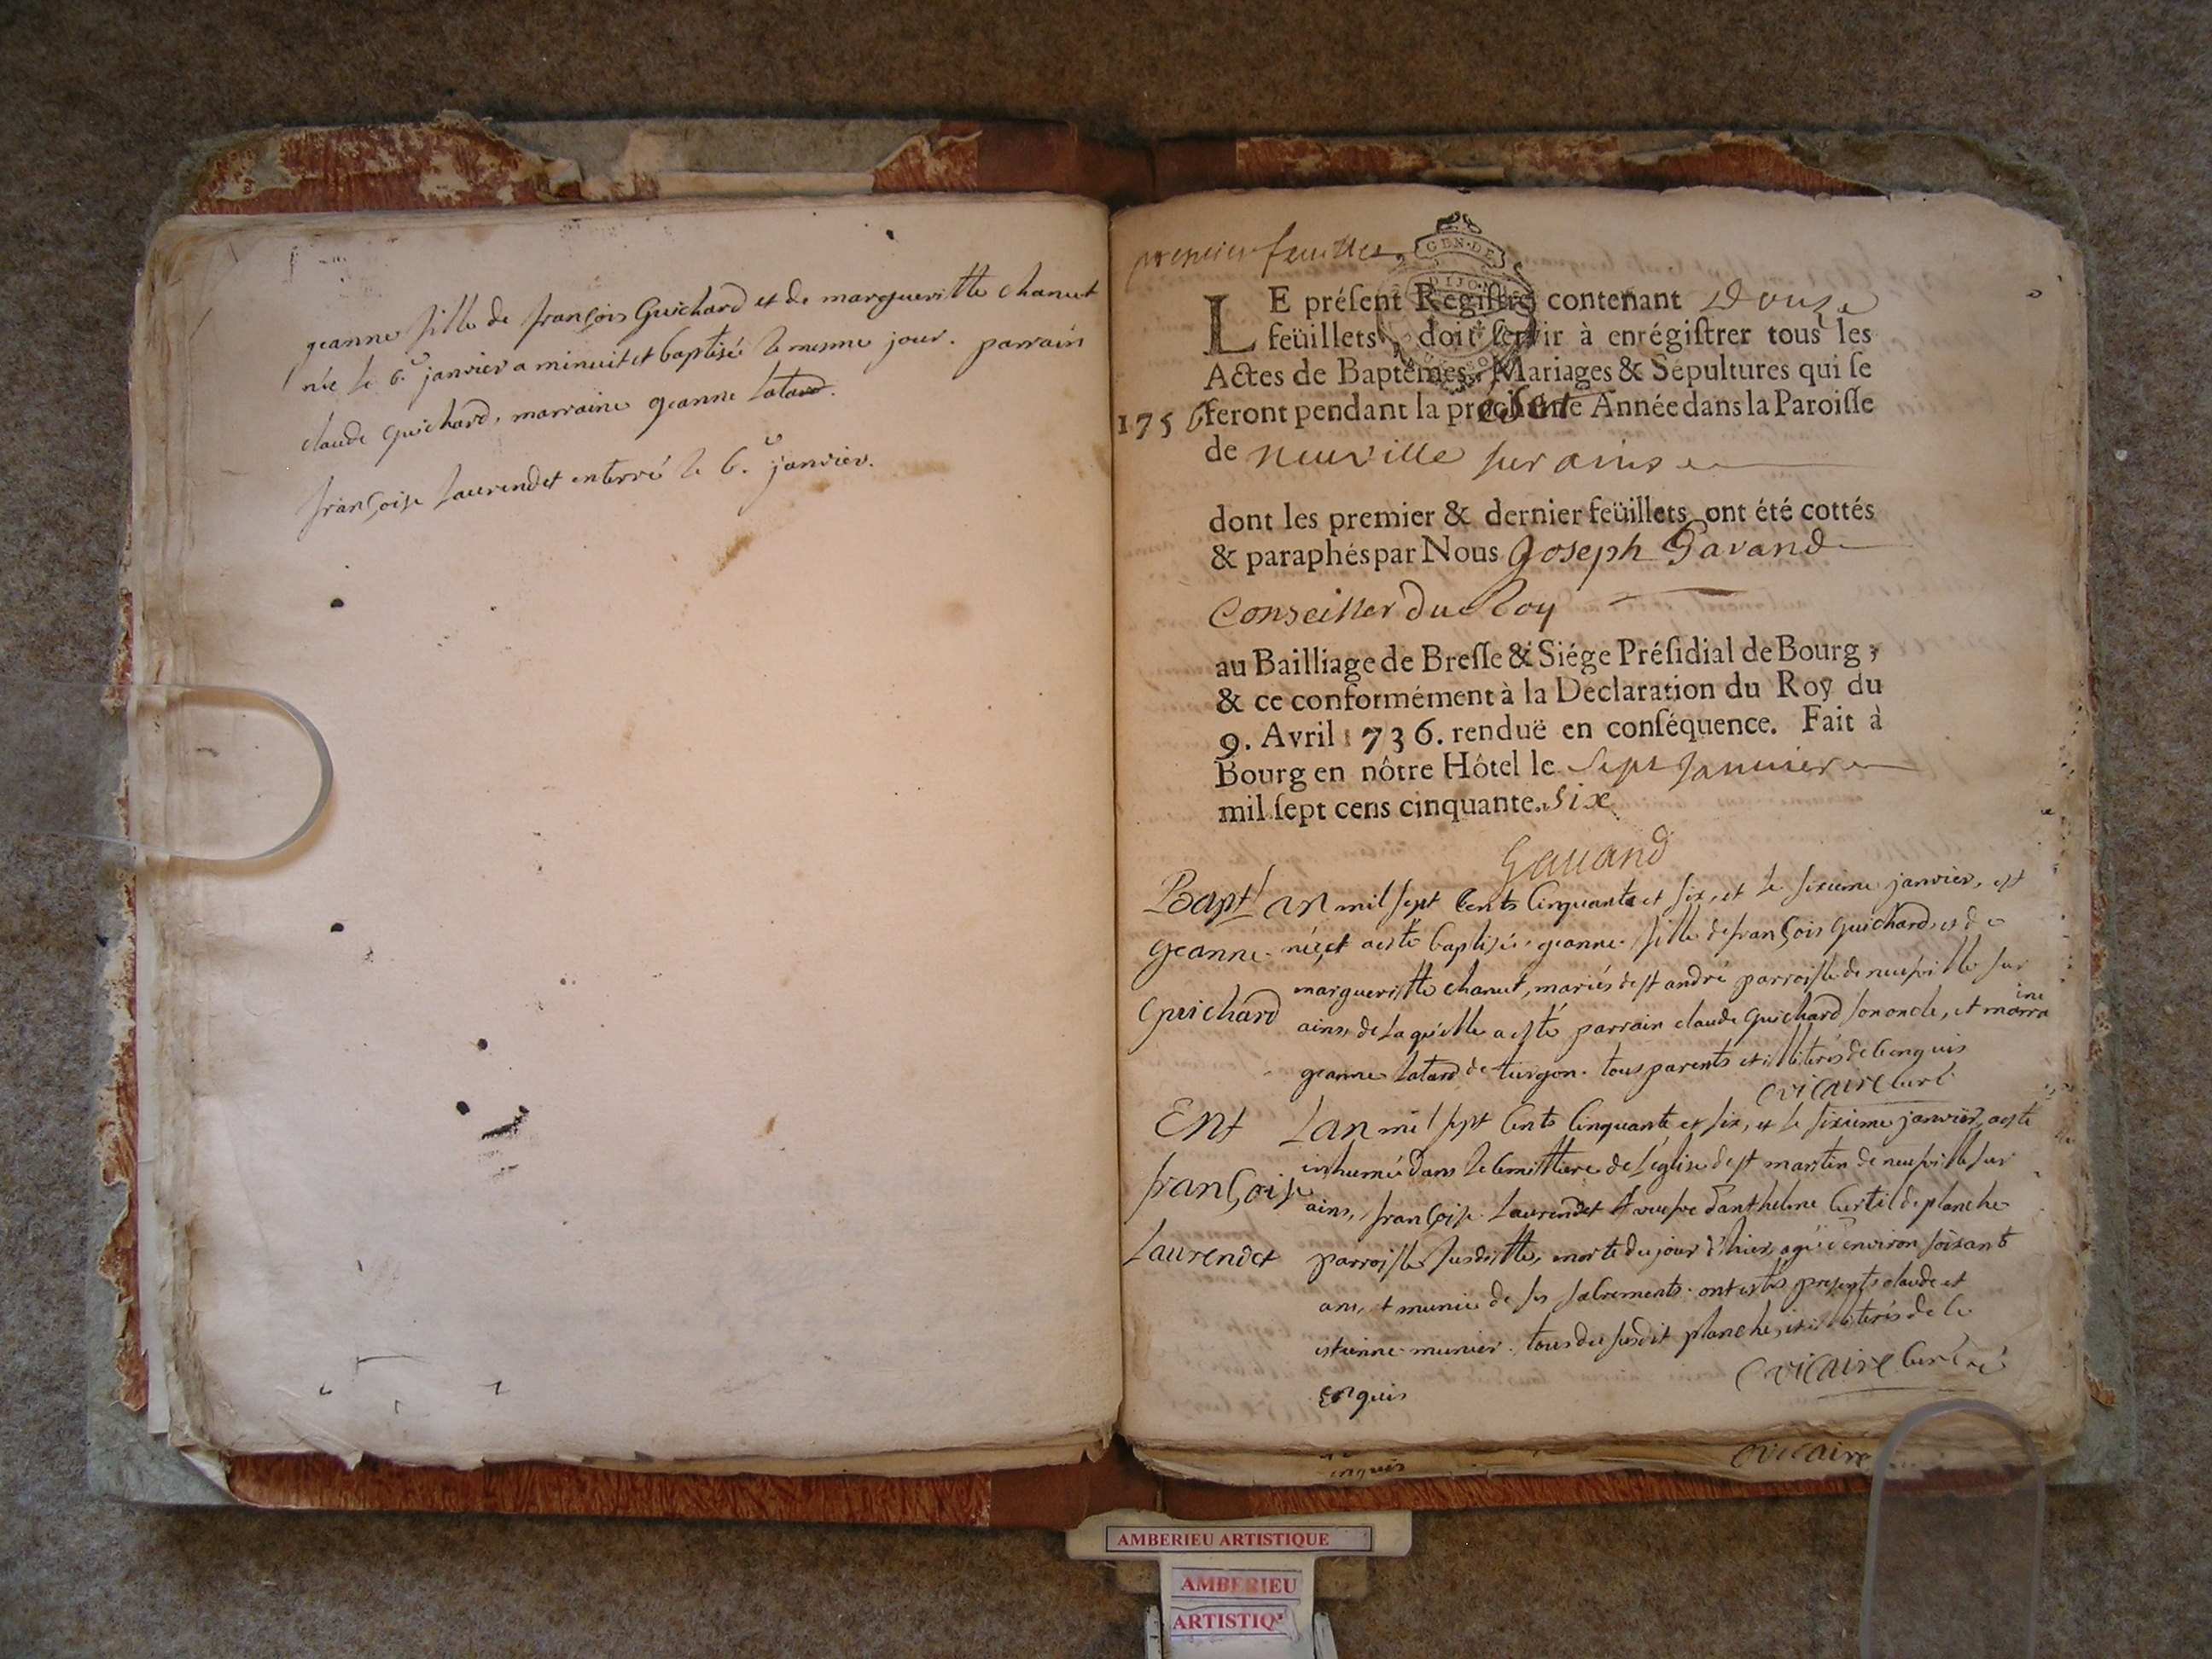 geanne fille de françois Guichard et de margueritte chanut
née le 6.e janvier a minuit et baptisée le mesme jour. parrain
claude guichard, marraine geanne Latard.
françoise Laurendet enterré le 6.e janvier.
premier feuillet
GEN. DE
DIJON
LE préſent Regiſtre contenant Douze
feüillets, doit ſervir à enrégiſtrer tous les
Actes de Baptêmes, Mariages & Sépultures qui ſe
1756 feront pendant la Année dans la Paroiſſe
de neuville sur ains
dont les premier & dernier feüillets ont été cottés
& paraphés par Nous Joseph Gavand
Conseiller du Roy
au Bailliage de Breſſe & Siége Préſidial de Bourg ;
& ce conformément à la Déclaration du Roy du
9. Avril 1736. renduë en conſéquence. Fait à
Bourg en nôtre Hôtel le Sept Janvier
mil ſept cens cinquante. six
Gavand
Bapt Lan mil sept cents cinquante et six, et le sixieme janvier, est
geanne née, et a esté baptisée geanne fille de françois guichard et de
margueritte chanut, mariés de st andré parroisse de neufville sur
Guichard ains, de laquelle a esté parrain claude guichard son oncle, et marraine
geanne Latard de turgon. tous parents et illiterés de ce enquis
vicaire curé
Ent Lan mil sept cents cinquante et six, et le sixieme janvier, a esté
inhumée dans le cimittiere de l'église de st martin de neufville sur
françoise ains, françoise Laurendet veufve d'anthelme curtil de planche
Laurendet parroisse susditte, morte du jour d'hier, agée d'environ soixante
ans, et munie de ses sacrements. ont estés presents claude et
estienne munier. tous du susdit planche, et illiterés de ce
enquis
vicaire curé
enquis
vicaire
AMBERIEU ARTISTIQUE
AMBERIEU
ARTISTIQ